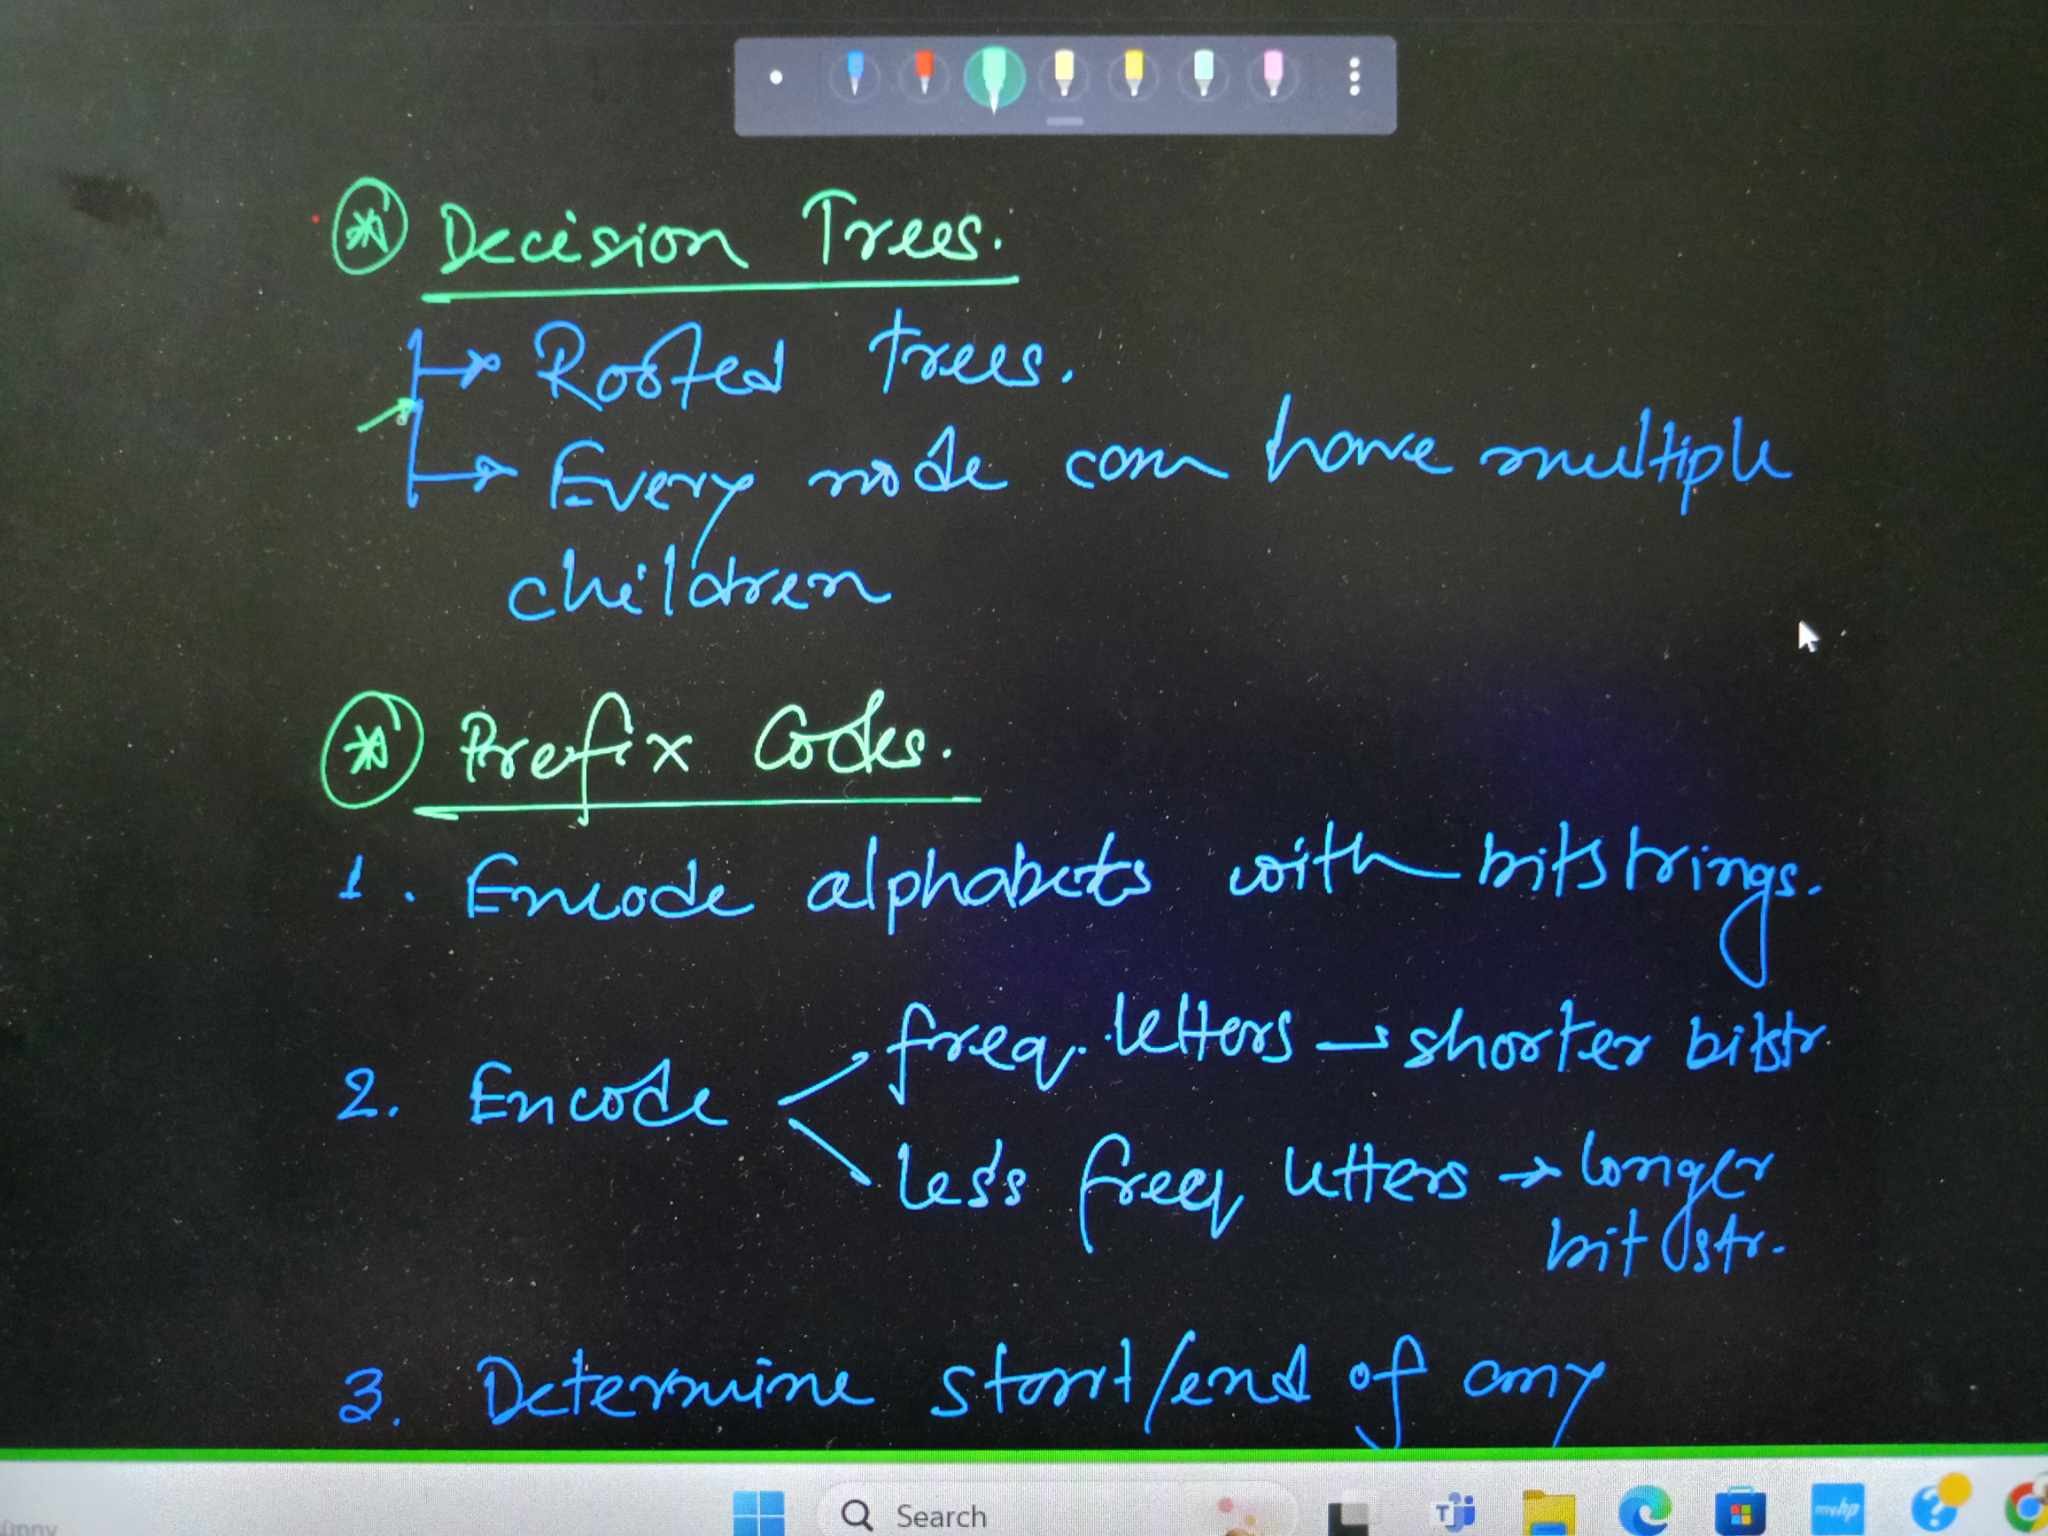 Decision Trees.
Rooted trees.
Every node can have multiple
children
Prefix Codes.
1. Encode alphabets with bitstrings.
freq. letters → shorter bitstr
2. Encode
less freq letters → longer
bit str.
3. Determine start/end of any
Search
myhp